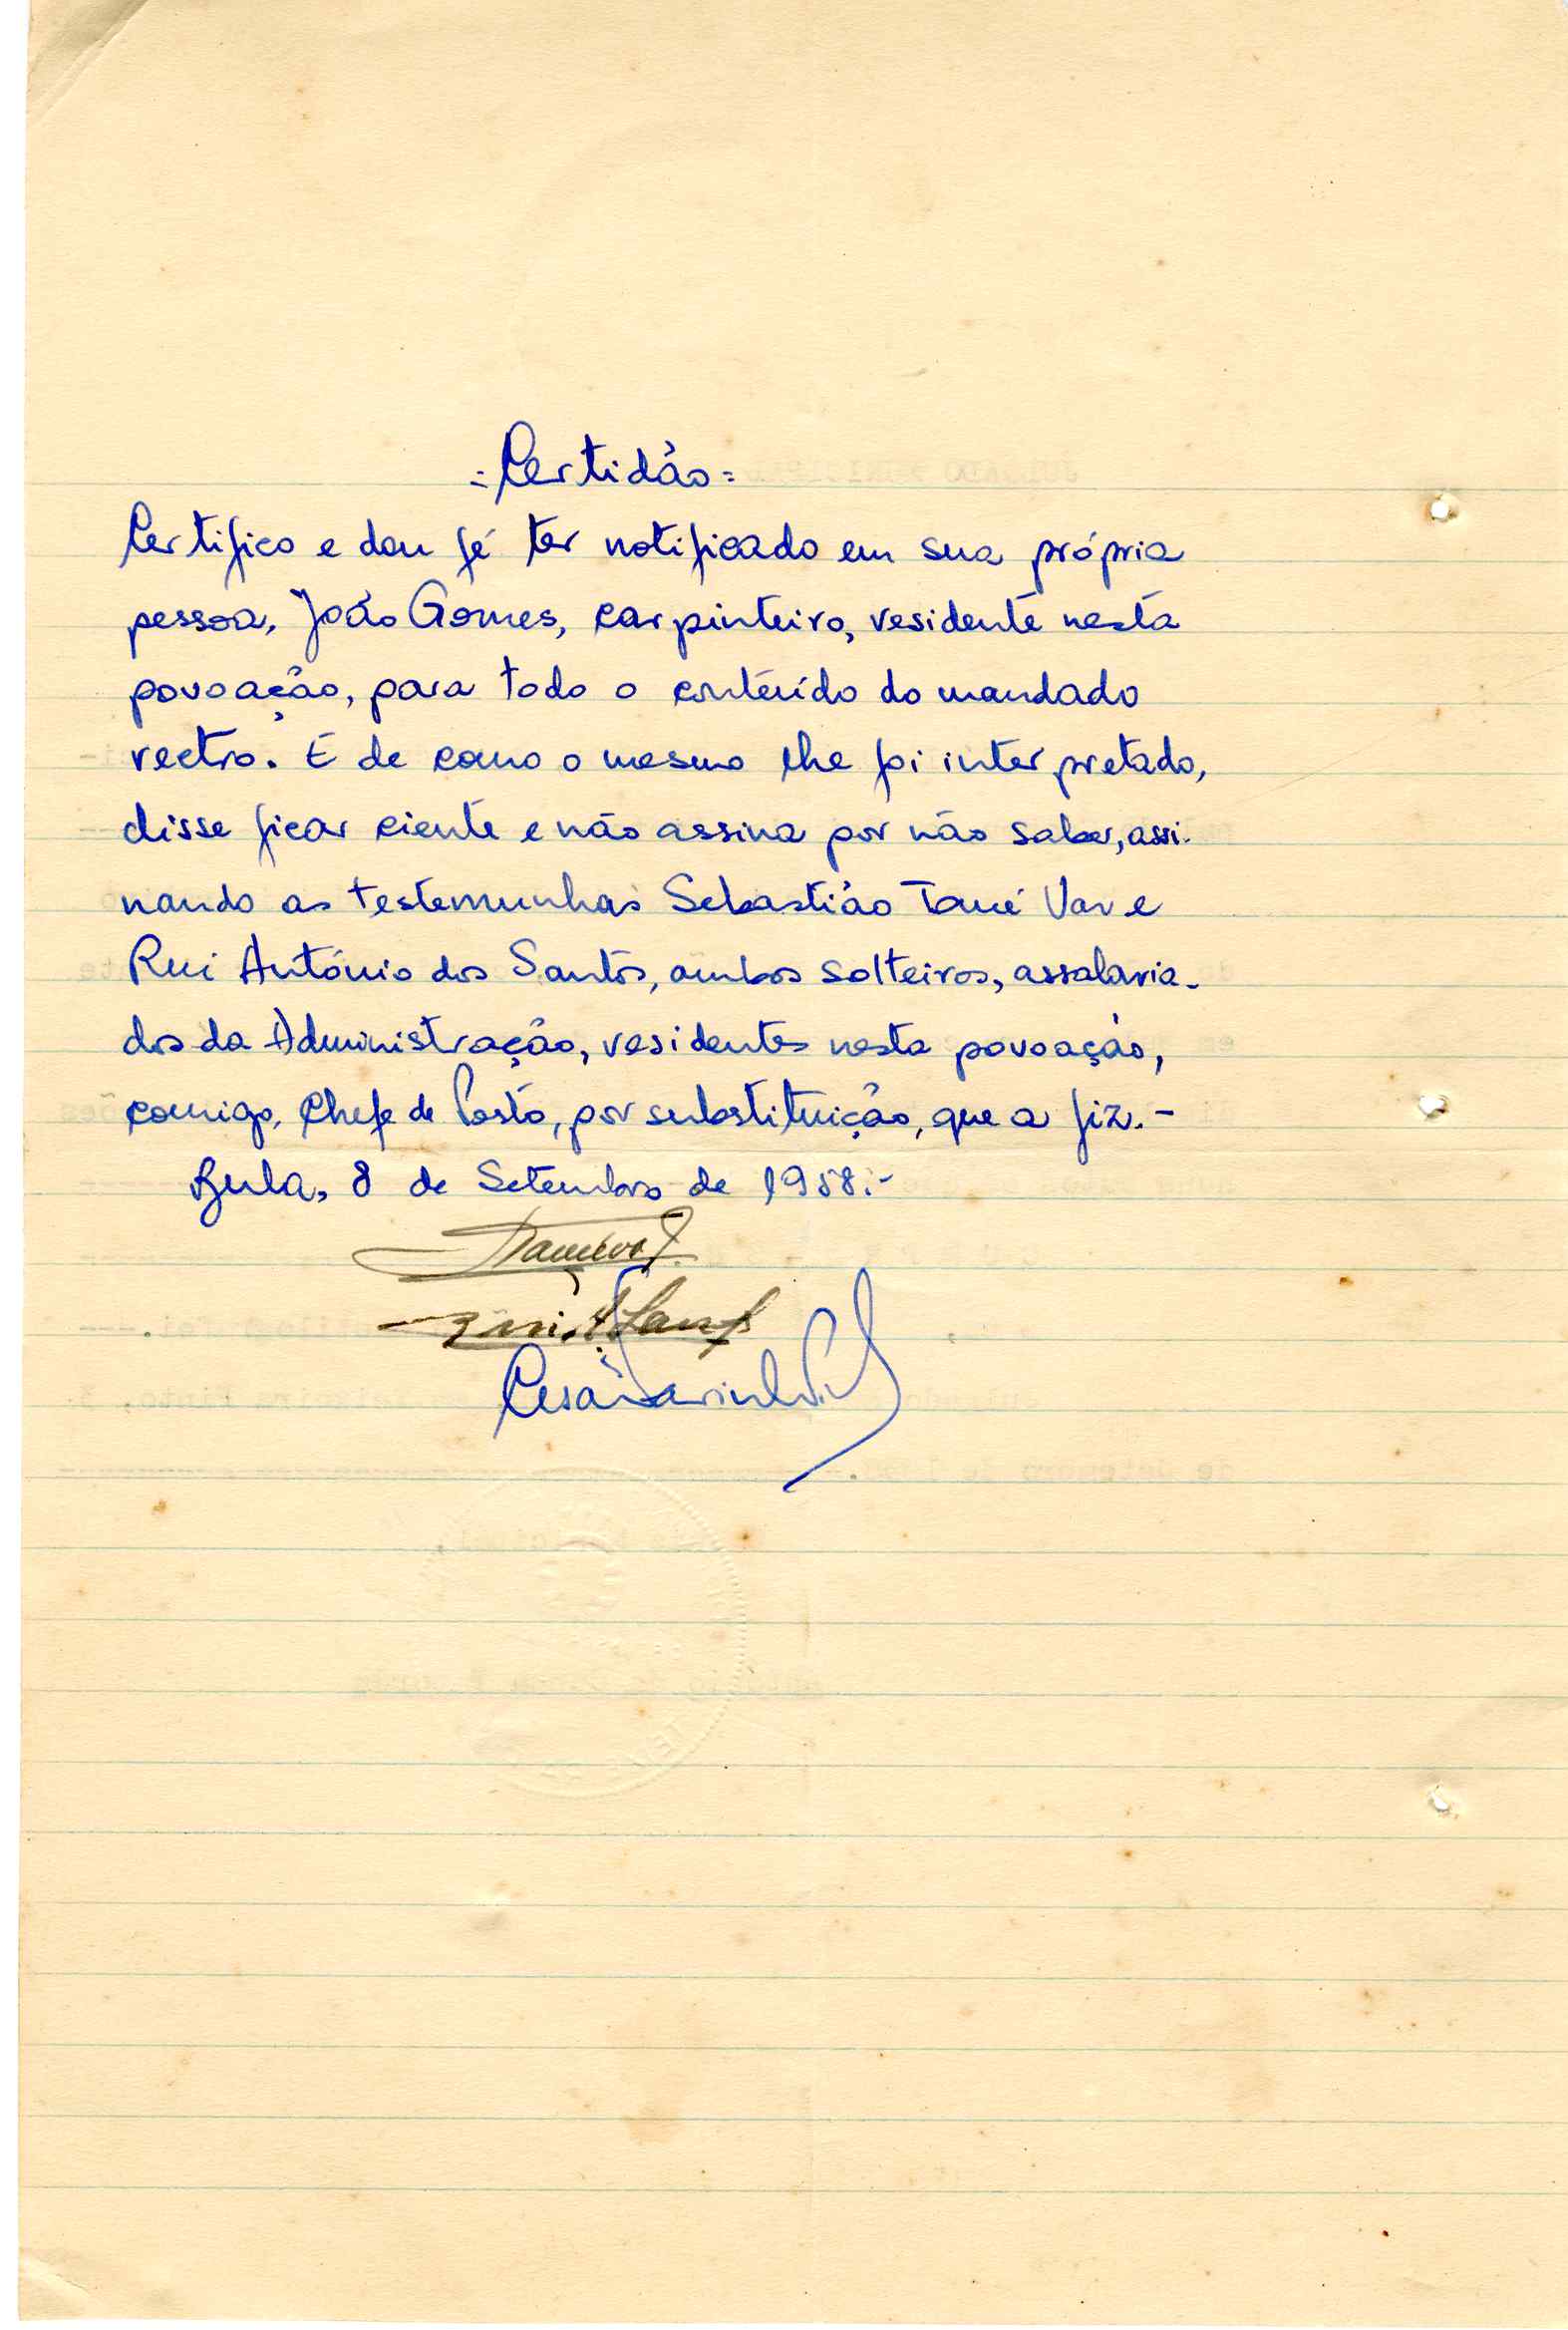 =Certidão=
Certifico e dou fé ter notificado em sua própria
pessoa, João Gomes, carpinteiro, residente nesta
povoação, para todo o conteúdo do mandado
rectro. E de como o mesmo lhe foi interpretado,
disse ficar ciente e não assina por não saber, assi-
nando as testemunhas Sebastião Tomé Vav e
Rui António dos Santos, ambos solteiros, assalaria-
dos da Administração, residentes nesta povoação,
comigo, Chefe de Posto, por substituição, que a fiz.-
Bula, 8 de Setembro de 1958.-